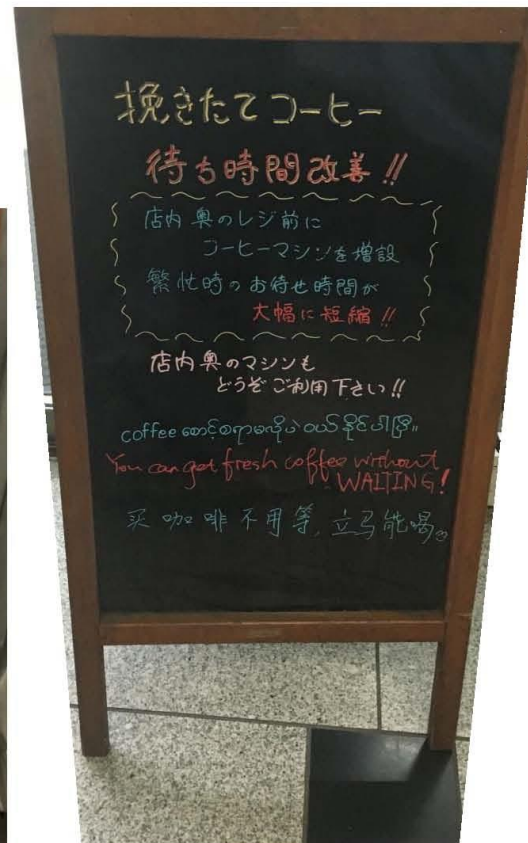 挽きたてコーヒー
待ち時間改善!!
店内奥のレジ前に
コーヒーマシンを増設
繁忙時のお待せ時間が
大幅に短縮!!
店内奥のマシンも
どうぞご利用下さい!!
coffee စောင့်စရာမလိုပဲ ဝယ်နိုင်ပါပြီ။
You can get fresh coffee without
WAITING!
买咖啡不用等,立马能喝